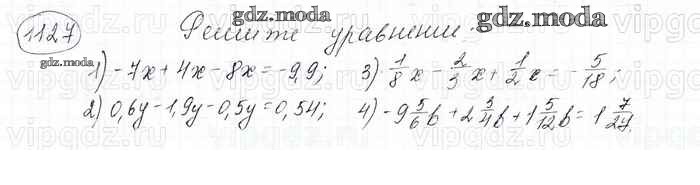 gdz.moda
1127 Решите уравнение:
gdz.moda
1) -7x + 4x - 8x = -9,9; 3) 1/8 x - 2/3 x + 1/2 x = - 5/18;
2) 0,6y - 1,9y - 0,5y = 0,54; 4) -9 5/6 b + 2 3/4 b + 1 5/12 b = 1 7/27.
gdz.moda